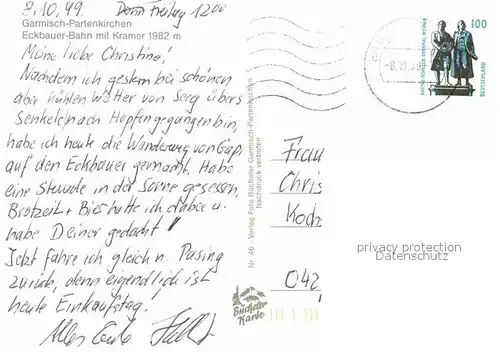 8.10.99. Freitag 1200
Garmisch-Partenkirchen
Eckbauer-Bahn mit Kramer 1982 m
Meine liebe Christine!
Nachdem ich gestern bei schönen
aber kühlen Wetter von Seeg übers
Senkele nach Hopfen gegangen bin,
habe ich heute die Wanderung von Gap.
auf den Eckbauer gemacht. Habe
eine Stunde in der Sonne gesessen,
Brotzeit + Bier hatte ich dabei u.
habe Deiner gedacht!
Jetzt fahre ich gleich n. Pasing
zurück, denn eigendlich ist
heute Einkaufstag!
Alles Gute
Nr. 46 - Verlag Foto Bücheler Garmisch-Partenkirchen
Nachdruck verboten
Bücheler
Karte
100
DEUTSCHLAND
Frau
Chris
Koch
042
privacy protection
Datenschutz